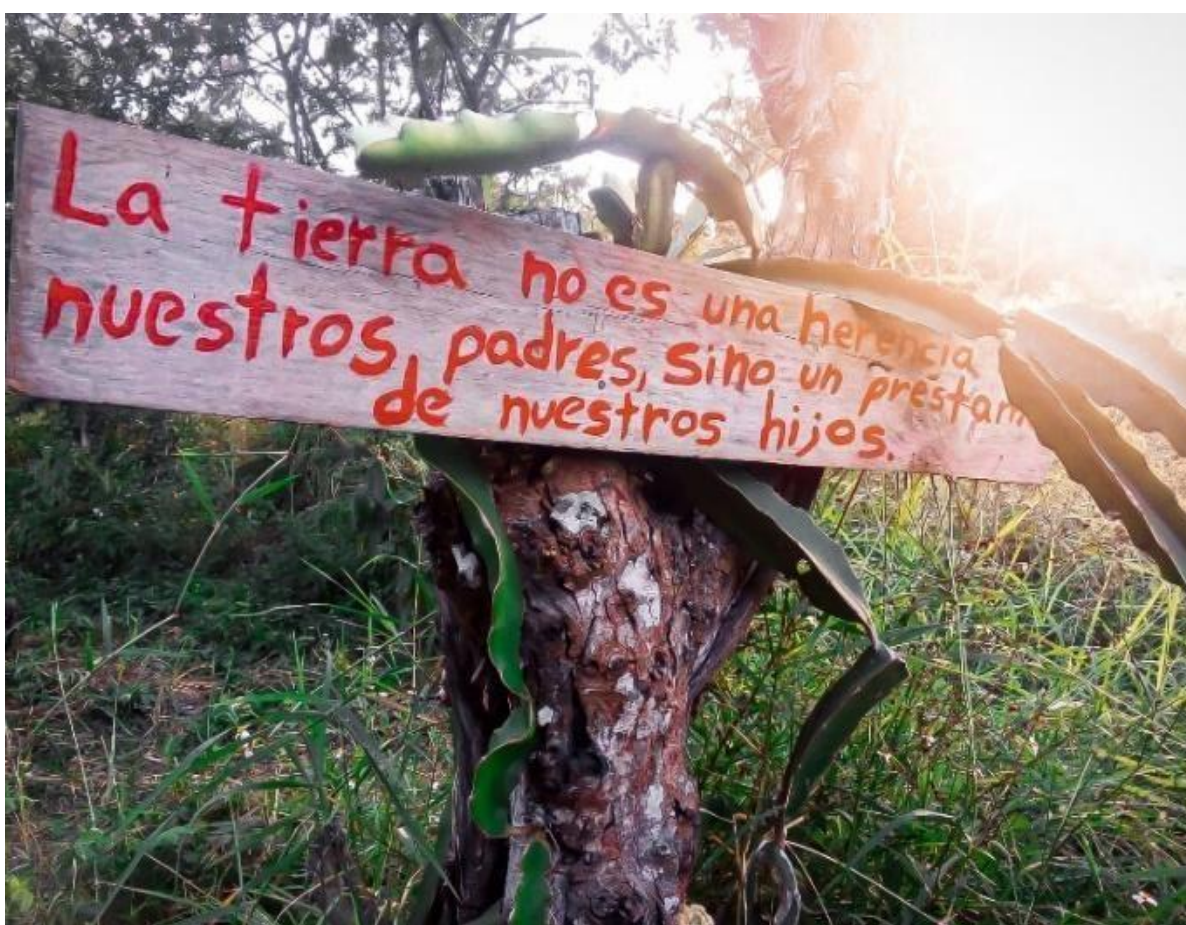 La tierra no es una herencia
nuestros, padres, sino un prestam
de nuestros hijos.